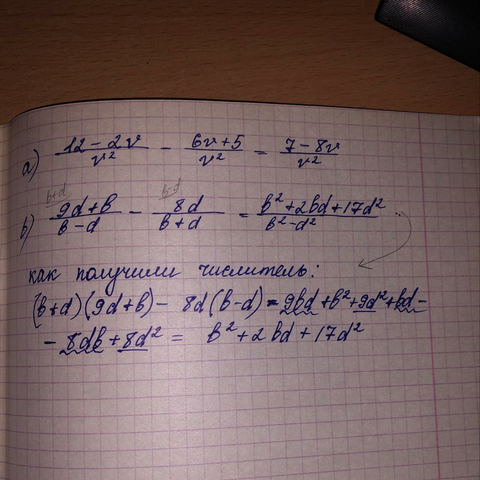 а) (12 − 2v)/v² − (6v + 5)/v² = (7 − 8v)/v²
b+d b-d
b) (9d + b)/(b − d) − 8d/(b + d) = (b² + 2bd + 17d²)/(b² − d²)
как получили числитель:
(b+d)(9d+b) − 8d(b−d) = 9bd + b² + 9d² + bd −
− 8db + 8d² = b² + 2bd + 17d²